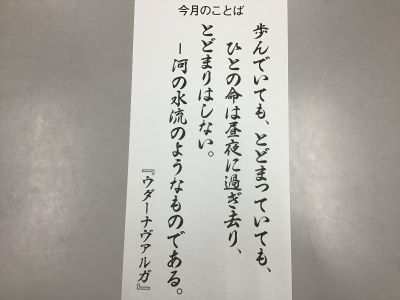 今月のことば
歩んでいても、とどまっていても、
ひとの命は昼夜に過ぎ去り、
とどまりはしない。
ー河の水流のようなものである。
『ウダーナヴァルガ』